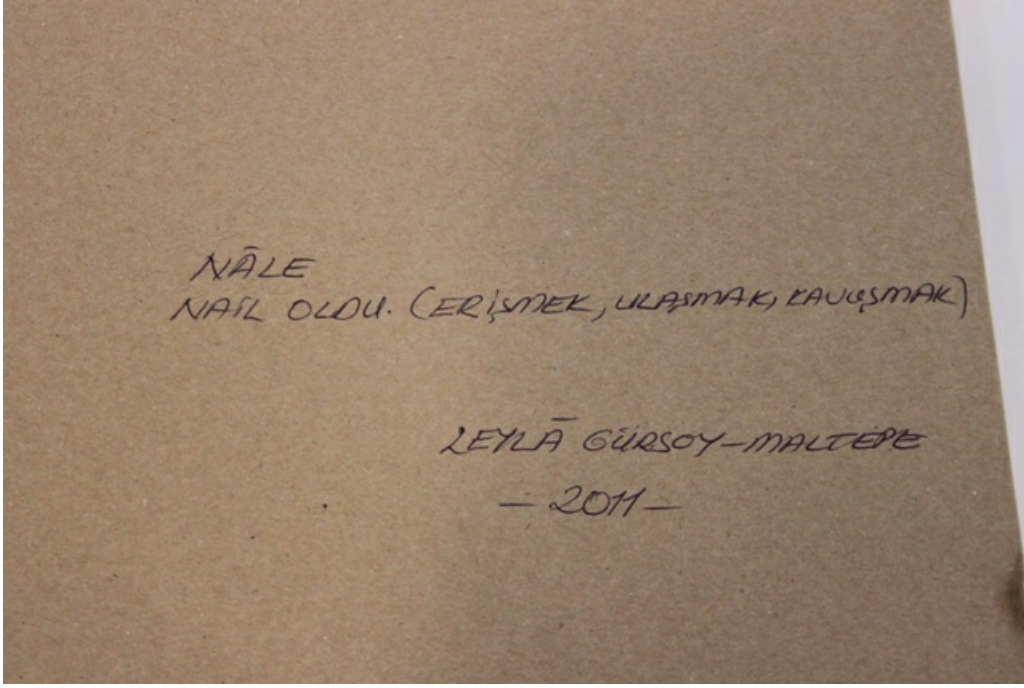 NĀLE
NAİL OLDU. (ERİŞMEK, ULAŞMAK, KAVUŞMAK)
LEYLĀ GÜRSOY-MALTEPE
- 2011 -